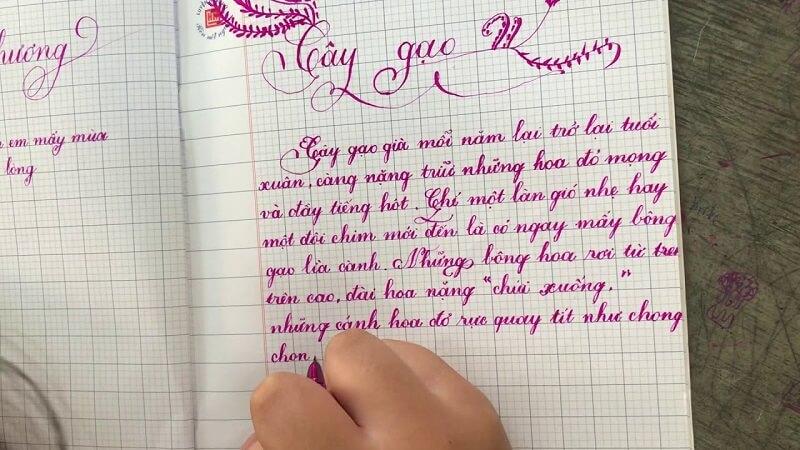 hương
em mấy mùa
lông
Cây gạo
Cây gạo già mỗi năm lại trở lại tuổi
xuân, càng nặng trĩu những hoa đỏ mọng
và đầy tiếng hót. Chỉ một làn gió nhẹ hay
một đôi chim mới đến là có ngay mấy bông
gạo lìa cành. Những bông hoa rơi từ trên
trên cao, đài hoa nặng "chúi xuống,"
những cánh hoa đỏ rực quay tít như chong
chon